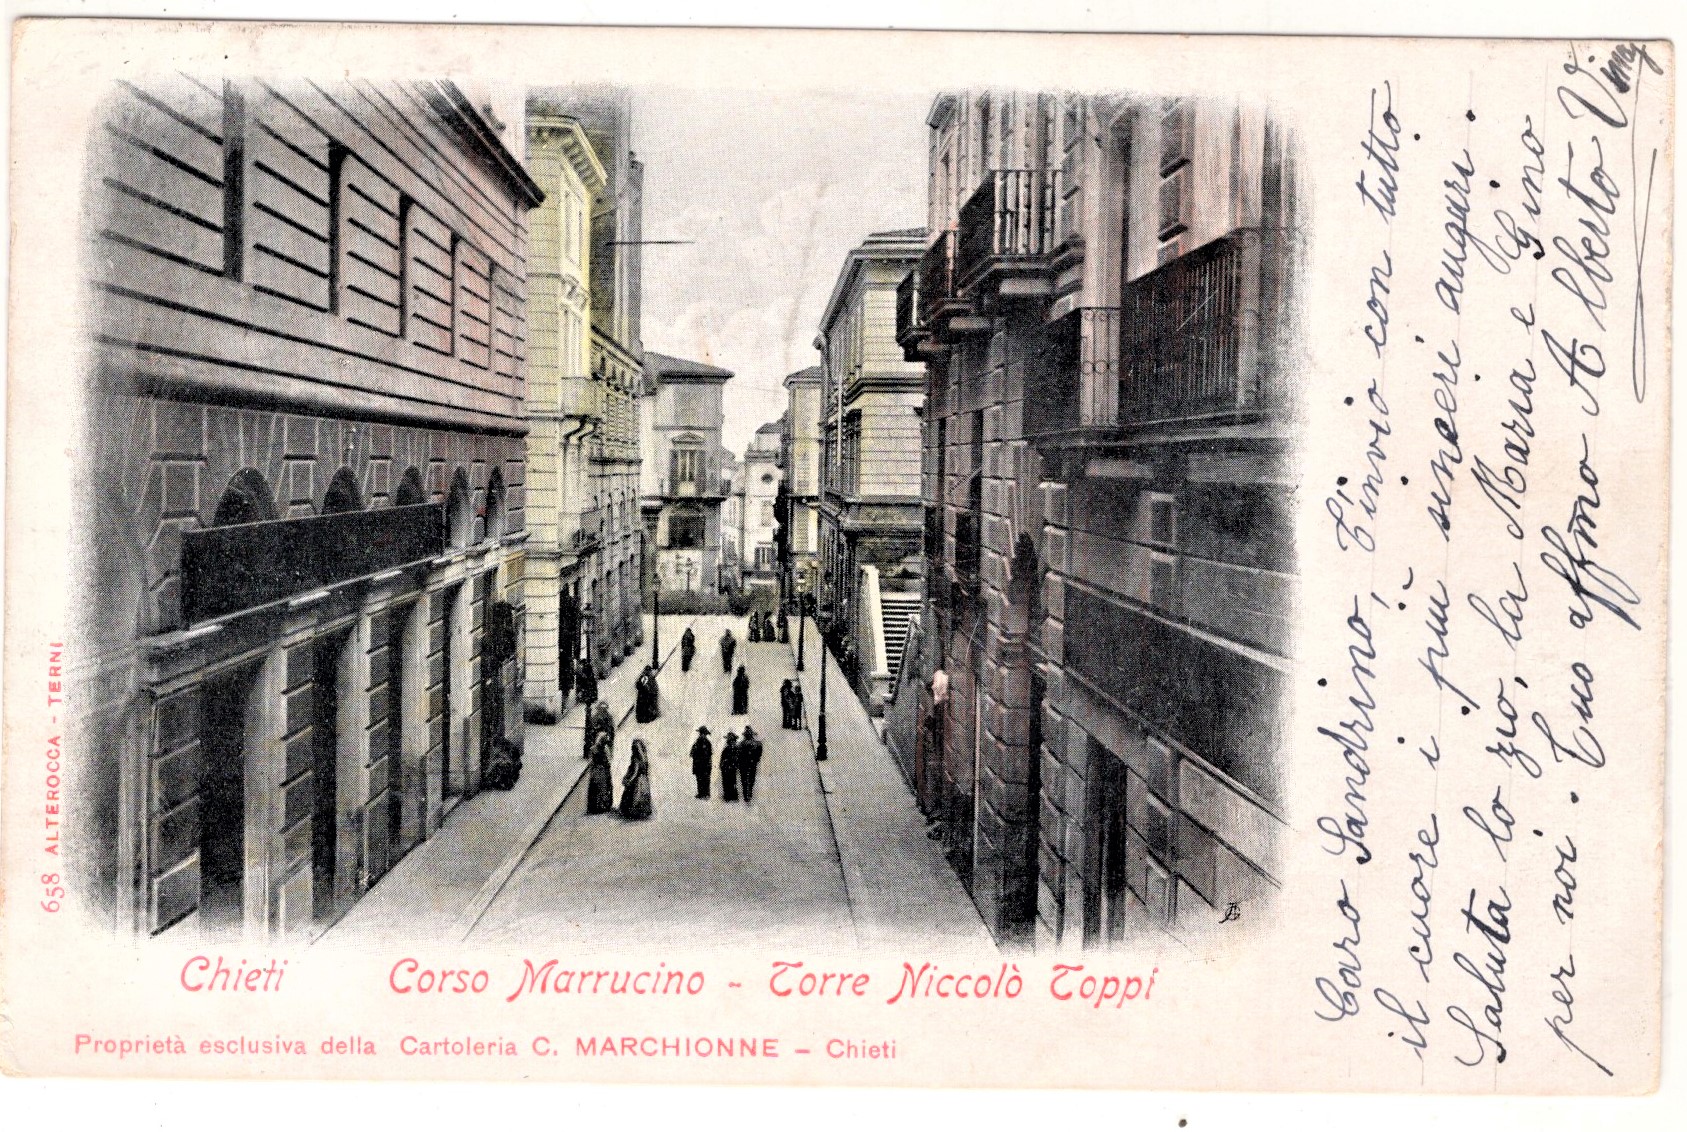 658 ALTEROCCA - TERNI
Chieti Corso Marrucino - Torre Niccolò Toppi
Proprietà esclusiva della Cartoleria C. MARCHIONNE - Chieti
Caro Sandrino, T'invio con tutto
il cuore i più sinceri auguri.
Saluta lo zio, la Maria e Gino
per noi. Tuo affmo Alberto V.